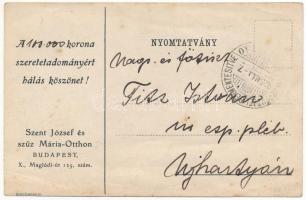 A 100.000 korona
szeretetadományért
hálás köszönet!
Szent József és
szűz Mária-Otthon
BUDAPEST,
X., Maglódi-út 125. szám.
NYOMTATVÁNY
Nagys. és főtiszt.
Fitz István
esp. pléb.
Ujhartyán